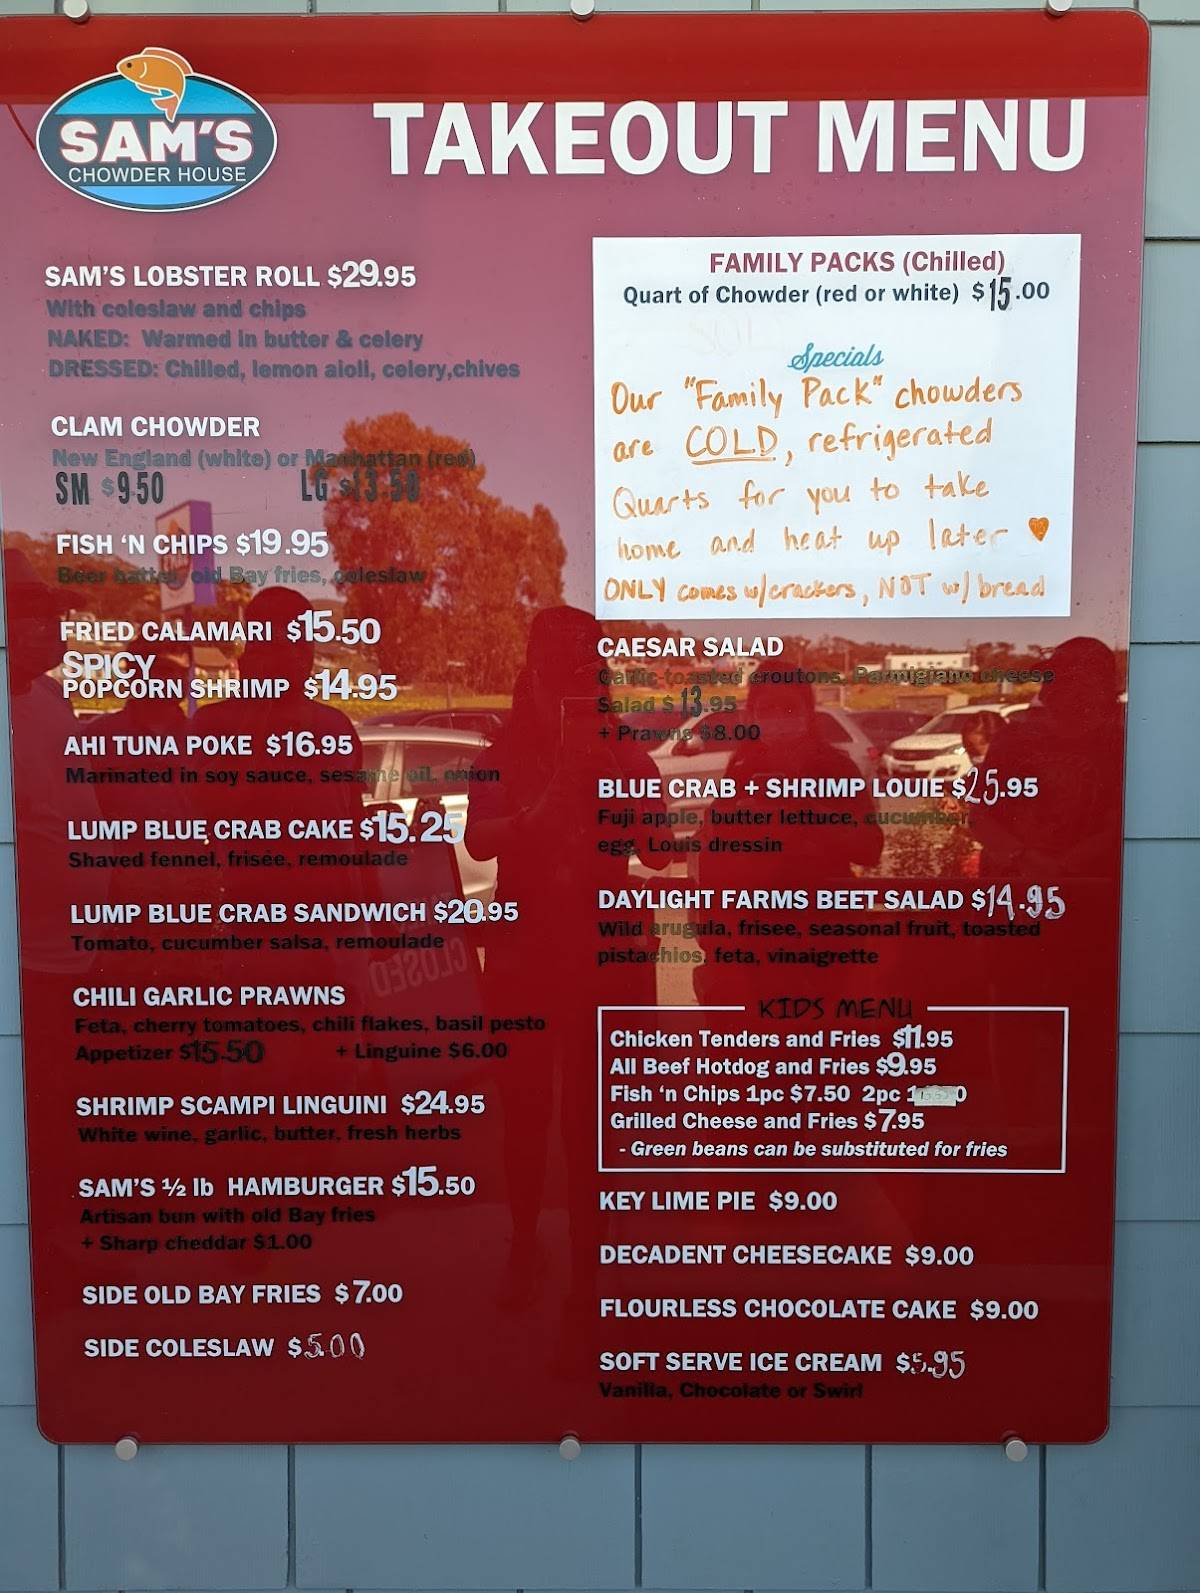 SAM'S
CHOWDER HOUSE
TAKEOUT MENU
SAM'S LOBSTER ROLL $29.95
With coleslaw and chips
NAKED: Warmed in butter & celery
DRESSED: Chilled, lemon aioli, celery,chives
CLAM CHOWDER
New England (white) or Manhattan (red)
SM $9.50 LG $13.50
FISH 'N CHIPS $19.95
Beer batter, old Bay fries, coleslaw
FRIED CALAMARI $15.50
SPICY
POPCORN SHRIMP $14.95
AHI TUNA POKE $16.95
Marinated in soy sauce, sesame oil, onion
LUMP BLUE CRAB CAKE $15.25
Shaved fennel, frisée, remoulade
LUMP BLUE CRAB SANDWICH $20.95
Tomato, cucumber salsa, remoulade
CHILI GARLIC PRAWNS
Feta, cherry tomatoes, chili flakes, basil pesto
Appetizer $15.50 + Linguine $6.00
SHRIMP SCAMPI LINGUINI $24.95
White wine, garlic, butter, fresh herbs
SAM'S ½ lb HAMBURGER $15.50
Artisan bun with old Bay fries
+ Sharp cheddar $1.00
SIDE OLD BAY FRIES $7.00
SIDE COLESLAW $5.00
FAMILY PACKS (Chilled)
Quart of Chowder (red or white) $15.00
Specials
Our "Family Pack" chowders
are COLD, refrigerated
Quarts for you to take
home and heat up later
ONLY comes w/crackers, NOT w/ bread
CAESAR SALAD
Garlic-toasted croutons, Parmigiano cheese
Salad $13.95
+ Prawns $8.00
BLUE CRAB + SHRIMP LOUIE $25.95
Fuji apple, butter lettuce, cucumber,
egg, Louis dressin
DAYLIGHT FARMS BEET SALAD $14.95
Wild arugula, frisee, seasonal fruit, toasted
pistachios, feta, vinaigrette
KIDS MENU
Chicken Tenders and Fries $11.95
All Beef Hotdog and Fries $9.95
Fish 'n Chips 1pc $7.50 2pc
Grilled Cheese and Fries $7.95
- Green beans can be substituted for fries
KEY LIME PIE $9.00
DECADENT CHEESECAKE $9.00
FLOURLESS CHOCOLATE CAKE $9.00
SOFT SERVE ICE CREAM $5.95
Vanilla, Chocolate or Swirl